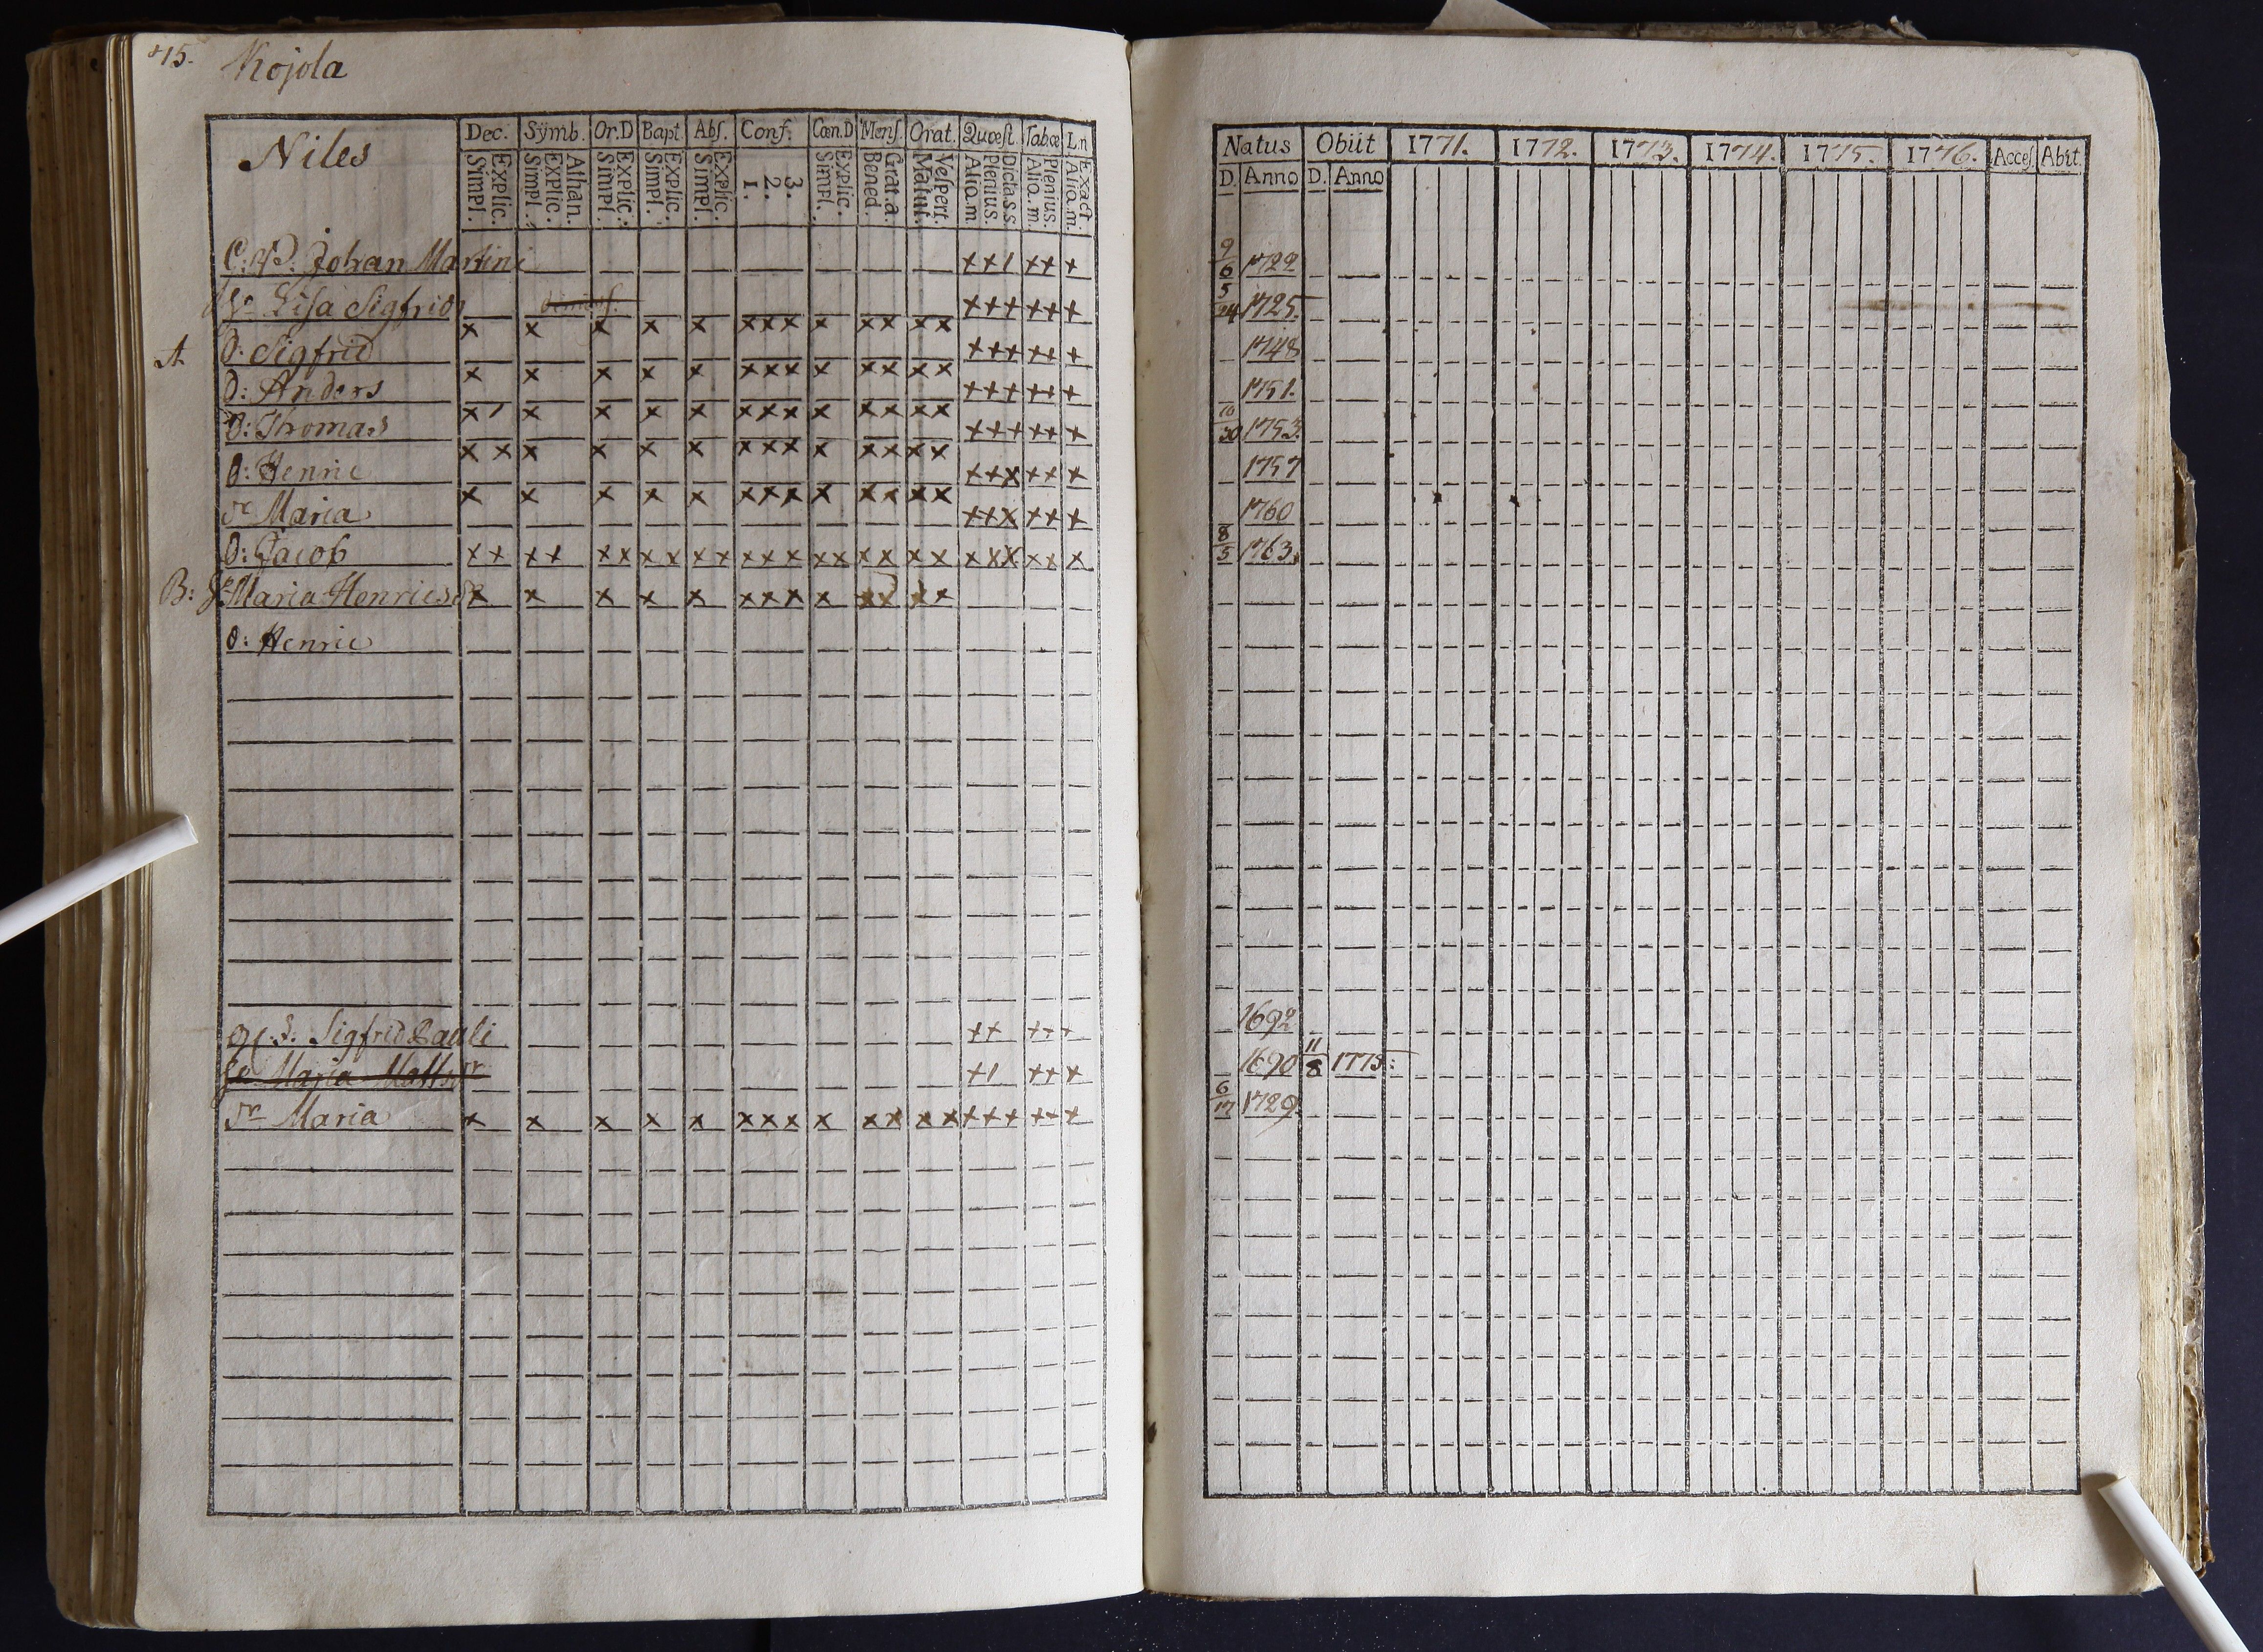 Kojola
Niles
Dec. Symb. Or.D Bapt. Abſ. Conf. Cœn.D Menſ. Orat. Quœſt. Tab.œ L.n
Explic. Simpl. Athan. Explic. Simpl. Explic. Simpl. Explic. Simpl. Explic. Simpl. 3. 2. 1. Explic. Simpl. Grat.a. Bened. Veſpert. Matut. Dicta.s.s. Plenius. Aliq.m. Plenius. Aliq.m. Exact. Aliq.m.
Natus Obiit 1771. 1772. 1773. 1774. 1775. 1776. Acceſ. Abit.
D. Anno D. Anno
Johan Martini + + / + + + 9/6 1722
Liſa Sigfrids + + + + + + 5/24 1725.
A D: Sigfrid x x x x x x x x x x x x x + + + + + + 1748
D: Anders x x x x x x x x x x x x x + + + + + + 1751.
D: Thomas x / x x x x x x x x x x x x + + + + + + 10/30 1753.
D: Henric x x x x x x x x x x x x x x + + x + + + 1757
Maria x x x x x x x x x x x x x + + x + + + 1760
D: Jacob x x x x x x x x x x x x x x x x x x x x x x x x x 8/5 1763.
B: Maria Henricsdr x x x x x x x x x x x x x
D: Henric
Sigfrid Pauli + + + + + 1692
Maria Mattsdr + / + + + 1690 11/8 1775:
Maria x x x x x x x x x x x x x + + + + + + 6/17 1729.